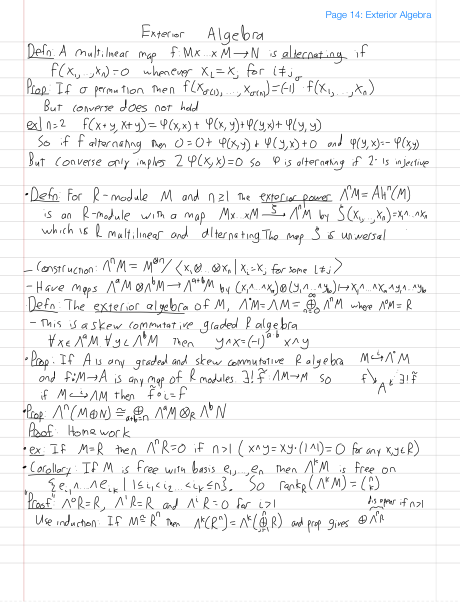 Page 14: Exterior Algebra
Exterior Algebra
Defn: A multilinear map f: Mx...xM→N is alternating if
f(x₁,...,xₙ)=0 whenever xᵢ=xⱼ for i≠j
Prop: If σ permution then f(x_σ(1),...,x_σ(n))=(-1)^σ f(x₁,...,xₙ)
But converse does not hold
ex) n=2 f(x+y, x+y) = φ(x,x) + φ(x,y)+φ(y,x)+φ(y,y)
So if f alternating then 0=0+φ(x,y)+φ(y,x)+0 and φ(y,x)=-φ(x,y)
But converse only implies 2φ(x,x)=0 so φ is alternating if 2· is injective
• Defn: For R-module M and n≥1 the exterior power ΛⁿM = Altⁿ(M)
is an R-module with a map Mx..xM →ξ ΛⁿM by ξ(x₁,..,xₙ)=x₁∧..∧xₙ
which is R multilinear and alternating The map ξ is universal
- Construction: ΛⁿM = M^⊗n / ⟨x₁⊗...⊗xₙ | xᵢ=xⱼ for some i≠j⟩
- Have maps ΛᵃM⊗ΛᵇM→Λᵃ⁺ᵇM by (x₁∧..∧xₐ)⊗(y₁∧..∧y_b)↦x₁∧..∧xₐ∧y₁∧..∧y_b
Defn: The exterior algebra of M, Λ˙M=ΛM= ⊕_{n=0}^∞ ΛⁿM where Λ⁰M=R
- This is a skew commutative graded R algebra
∀x∈ΛᵃM ∀y∈ΛᵇM then y∧x=(-1)^{ab} x∧y
• Prop: If A is any graded and skew commutative R algebra M↪Λ˙M
and f: M→A is any map of R modules ∃! f̃: ΛM→M so f↘ A ↙∃! f̃
if M ↪ ΛM then f̃∘i=f
• Prop: Λⁿ(M⊕N) ≅ ⊕_{a+b=n} ΛᵃM⊗_R ΛᵇN
Proof: Homework
• ex: If M=R then ΛⁿR=0 if n>1 (x∧y=xy·(1∧1)=0 for any x,y∈R)
• Corollary: If M is free with basis e₁,...,eₙ then ΛᵏM is free on
{e_{i₁}∧...∧e_{iₖ} | 1≤i₁<i₂...<iₖ≤n}. So rank_R(ΛᵏM)=(n k)
"Proof" Λ⁰R=R, Λ¹R=R and ΛⁱR=0 for i>1
Use induction: If M≅Rⁿ then Λᵏ(Rⁿ)=Λᵏ(⊕_{i=1}^n R) and prop gives ⊕ΛⁿR